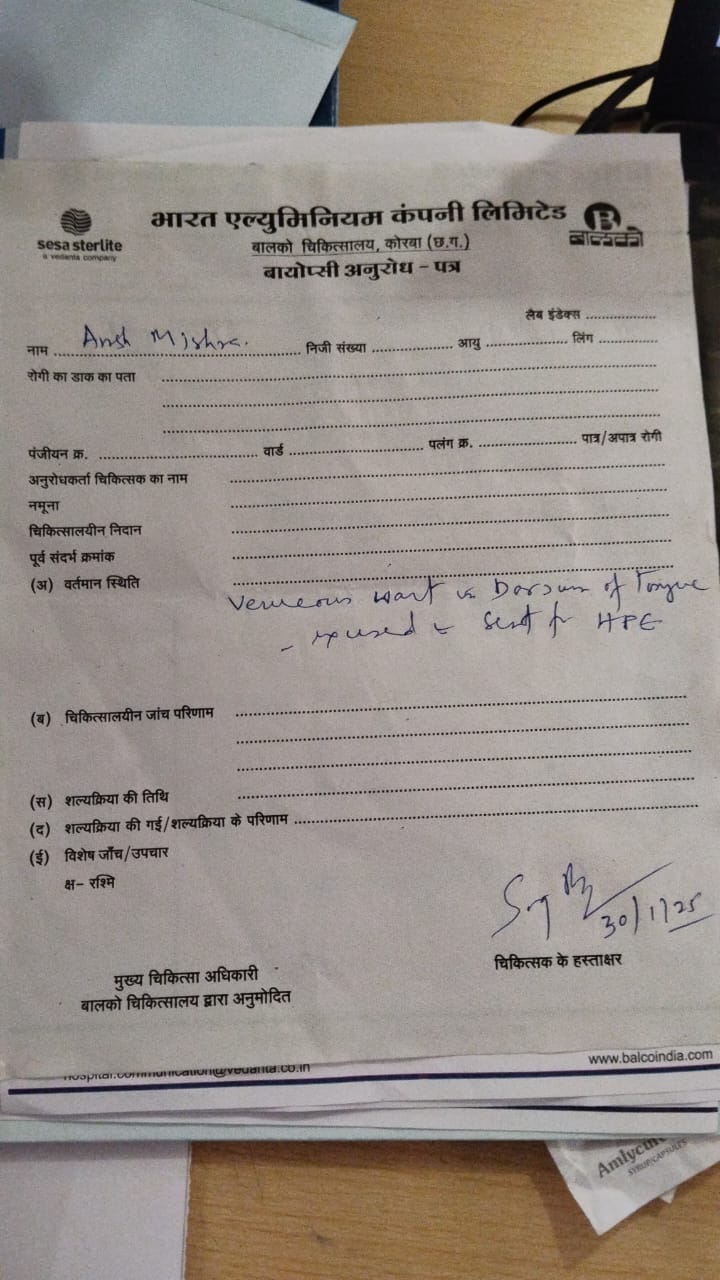 sesa sterlite
a vedanta company
भारत एल्युमिनियम कंपनी लिमिटेड
बालको चिकित्सालय, कोरबा (छ.ग.)
बायोप्सी अनुरोध - पत्र
बालको
लैब इंडेक्स ..................
नाम Ansh Mishra. निजी संख्या .................. आयु .................. लिंग ..................
रोगी का डाक का पता
पंजीयन क्र. .................. वार्ड .................. पलंग क्र. .................. पात्र/अपात्र रोगी
अनुरोधकर्ता चिकित्सक का नाम
नमूना
चिकित्सालयीन निदान
पूर्व संदर्भ क्रमांक
(अ) वर्तमान स्थिति
wart Dorsum of Tongue
- Sent for HPE
(ब) चिकित्सालयीन जांच परिणाम
(स) शल्यक्रिया की तिथि
(द) शल्यक्रिया की गई/शल्यक्रिया के परिणाम
(ई) विशेष जाँच/उपचार
क्ष- रश्मि
30/1/25
चिकित्सक के हस्ताक्षर
मुख्य चिकित्सा अधिकारी
बालको चिकित्सालय द्वारा अनुमोदित
hospital.communication@vedanta.co.in
www.balcoindia.com
SYRUP/CAPSULES